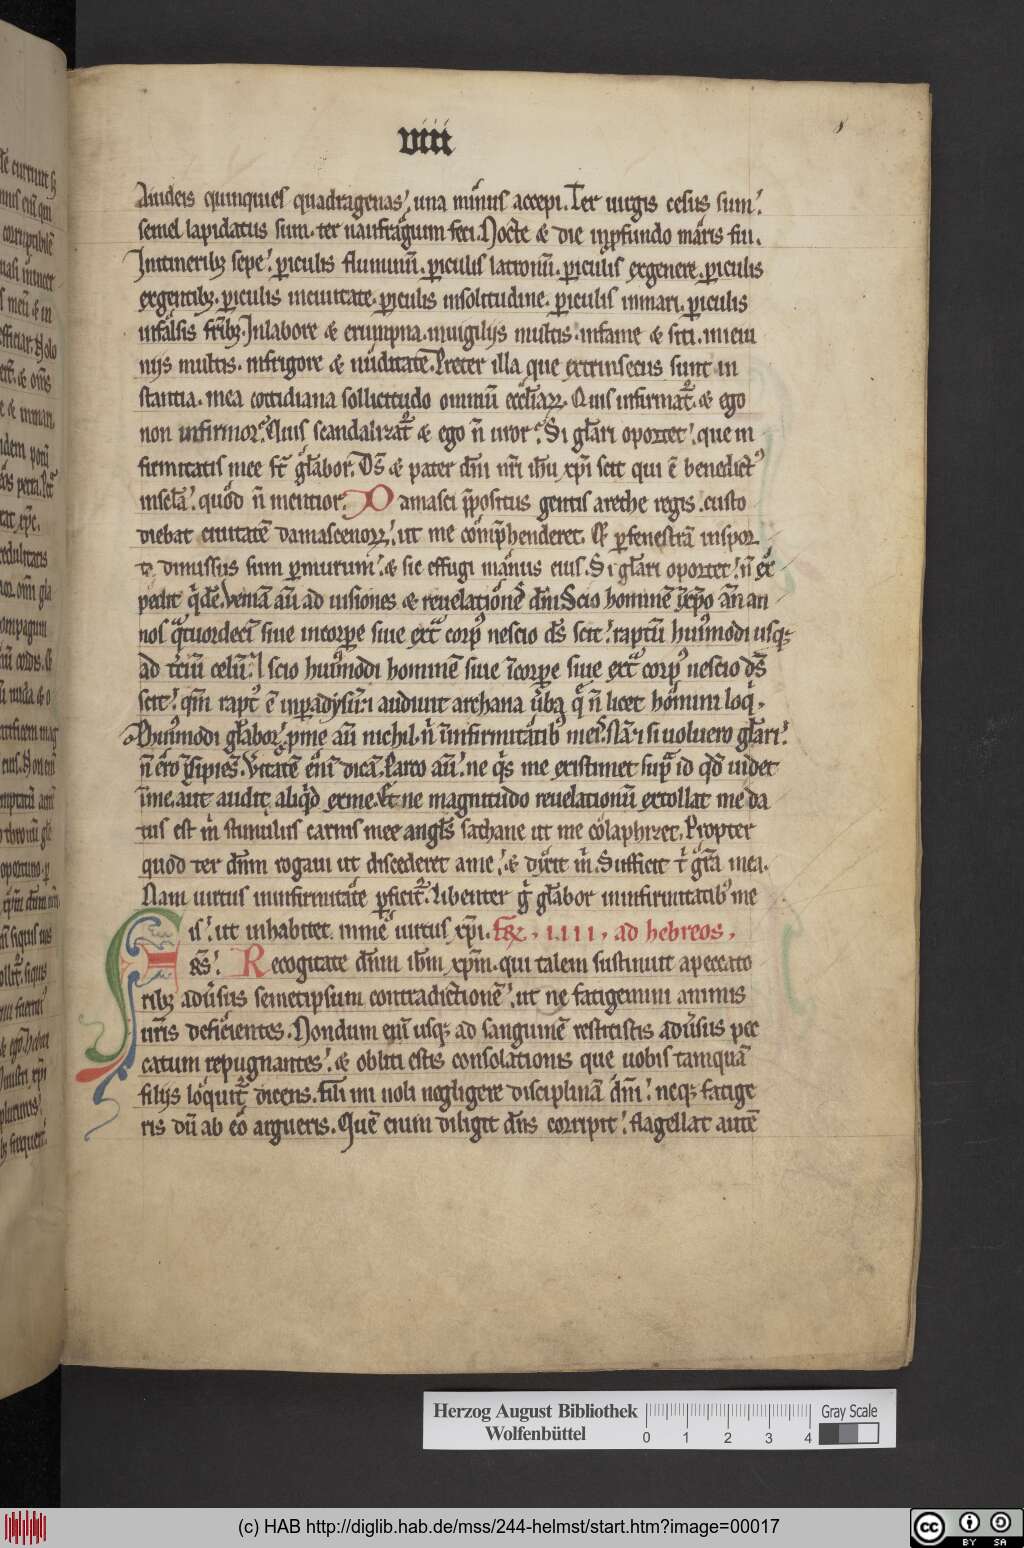 viii
8
Iudeis quinquies quadragenas. una minus accepi. Ter uirgis cesus sum.
semel lapidatus sum. ter naufragium feci. Nocte & die in ꝓfundo maris fui.
Initineribꝫ sepe. ꝑiculis fluminū. ꝑiculis latronū. ꝑiculis exgenere. ꝑiculis
exgentibꝫ. ꝑiculis inciuitate. ꝑiculis insolitudine. ꝑiculis inmari. ꝑiculis
infalsis fr̄ibꝫ. Inlabore & erumpna. inuigiliis multis. infame & siti. inieiu
niis multis. infrigore & nuditate. Preter illa que extrinsecus sunt in
stantia. mea cottidiana sollicitudo omniū eccl̄iaꝝ. Quis infirmat̄. & ego
non infirmor. Quis scandalizat̄ & ego n̄ uror. Si gl̄ari oportet. que in
firmitatis mee st̄ gl̄abor. Ds̄ & pater dn̄i nr̄i ih̄u xp̄i scit qui ē benedictꝰ
insecl̄a. quod n̄ mentior. Damasci p̄positus gentis arethe regis. custo
diebat ciuitatē damascenoꝝ. ut me comp̄henderet. Et ꝑ fenestrā inspor
ta dimissus sum ꝑmurum. & sic effugi manus eius. Si gl̄ari oportet. n̄ ex
pedit qͥdē. Ueniā aū ad uisiones & reuelationes dn̄i. Scio hominē ī xp̄o an̄ an
nos qͣtuordeci siue incorpe siue extͣ corpꝰ nescio ds̄ scit. raptū huiꝰmodi usqꝫ
ad tciū celū. Et scio huiꝰmodi hominē siue īcorpe siue extͣ corpꝰ nescio ds̄
scit. qm̄ raptꝰ ē inparadysū. & audiuit archana ūba q̄ n̄ licet homini loqͥ.
Ꝓhuiꝰmodi gl̄abor. ꝓme aū nichil. nͥ īinfirmitatibꝰ meis. Nā & si uoluero gl̄ari.
n̄ ero īsipiēs. ūitatē enī dicā. Parco aū. ne qͥs me existimet supͣ id qd̄ uidet
ī me. aut audit aliqͥd exme. Et ne magnitudo reuelationū extollat me da
tus est mͥ stimulus carnis mee angl̄s sathane ut me colaphizet. Propter
quod ter dn̄m rogaui ut discederet ame. & dixit mͥ. Sufficit tͥ gr̄a mea.
Nam uirtus ininfirmitate ꝑficit̄. Libenter gͥ gl̄abor ininfirmitatibꝰ me
is. ut inhabitet inme uirtus xp̄i. Fr̄ꝫ. IIII. ad hebreos.
FRs̄. Recogitate dn̄m ih̄m xp̄m. qui talem sustinuit apeccato
ribꝫ adūsus semetipsum contradictionē. ut ne fatigemini animis
uris deficientes. Nondum eni usqꝫ ad sanguinē restitistis adūsus pec
catum repugnantes. & obliti estis consolationis que uobis tamquā
filiis loquit̄ dicens. Fili mi noli negligere disciplinā dn̄i. neqꝫ fatige
ris dū ab eo argueris. Quē enim diligit dn̄s corripit. flagellat autē
Herzog August Bibliothek
Wolfenbüttel
Gray Scale
0 1 2 3 4
(c) HAB http://diglib.hab.de/mss/244-helmst/start.htm?image=00017
cc BY SA